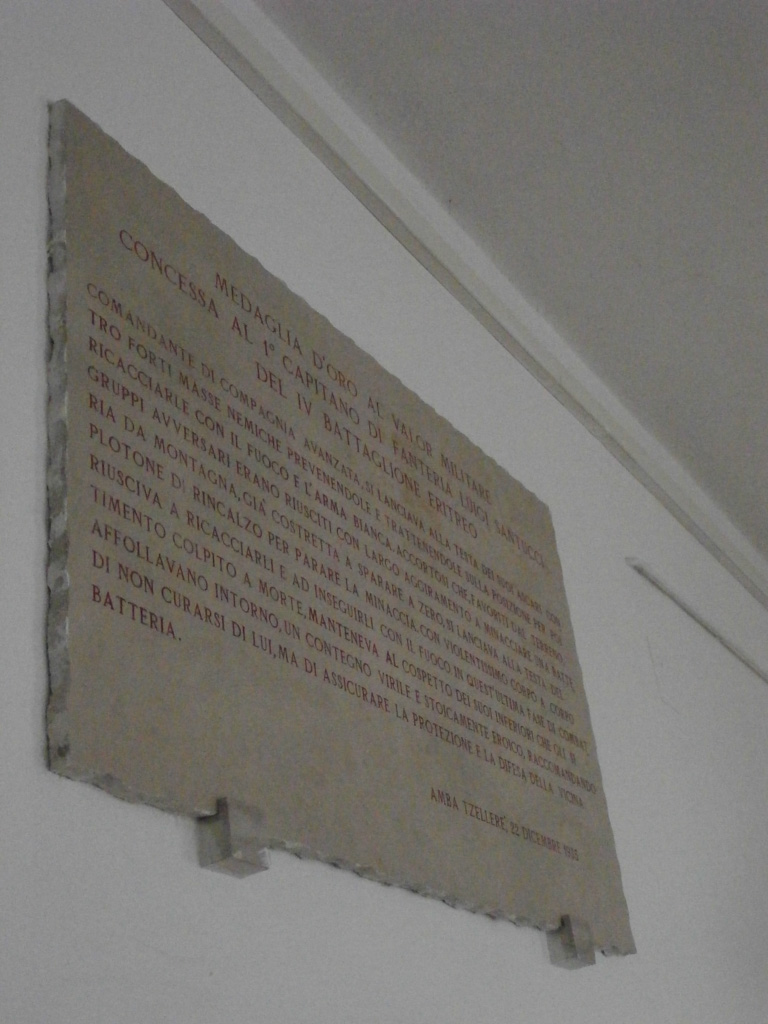 MEDAGLIA D'ORO AL VALOR MILITARE
CONCESSA AL 1° CAPITANO DI FANTERIA LUIGI SANTUCCI
DEL IV BATTAGLIONE ERITREO
COMANDANTE DI COMPAGNIA AVANZATA, SI LANCIAVA ALLA TESTA DEI SUOI ASCARI CON
TRO FORTI MASSE NEMICHE PREVENENDOLE E TRATTENENDOLE SULLA POSIZIONE PER POI
RICACCIARLE CON IL FUOCO E L'ARMA BIANCA. ACCORTOSI CHE, FAVORITI DAL TERRENO,
GRUPPI AVVERSARI ERANO RIUSCITI CON LARGO AGGIRAMENTO A MINACCIARE UNA BATTE
RIA DA MONTAGNA, GIÀ COSTRETTA A SPARARE A ZERO, SI LANCIAVA ALLA TESTA DEL
PLOTONE DI RINCALZO PER PARARE LA MINACCIA. CON VIOLENTISSIMO CORPO A CORPO
RIUSCIVA A RICACCIARLI E AD INSEGUIRLI CON IL FUOCO. IN QUEST'ULTIMA FASE DI COMBAT
TIMENTO COLPITO A MORTE, MANTENEVA AL COSPETTO DEI SUOI INFERIORI CHE GLI SI
AFFOLLAVANO INTORNO, UN CONTEGNO VIRILE E STOICAMENTE EROICO, RACCOMANDANDO
DI NON CURARSI DI LUI, MA DI ASSICURARE LA PROTEZIONE E LA DIFESA DELLA VICINA
BATTERIA.
AMBA TZELLERÉ, 22 DICEMBRE 1935